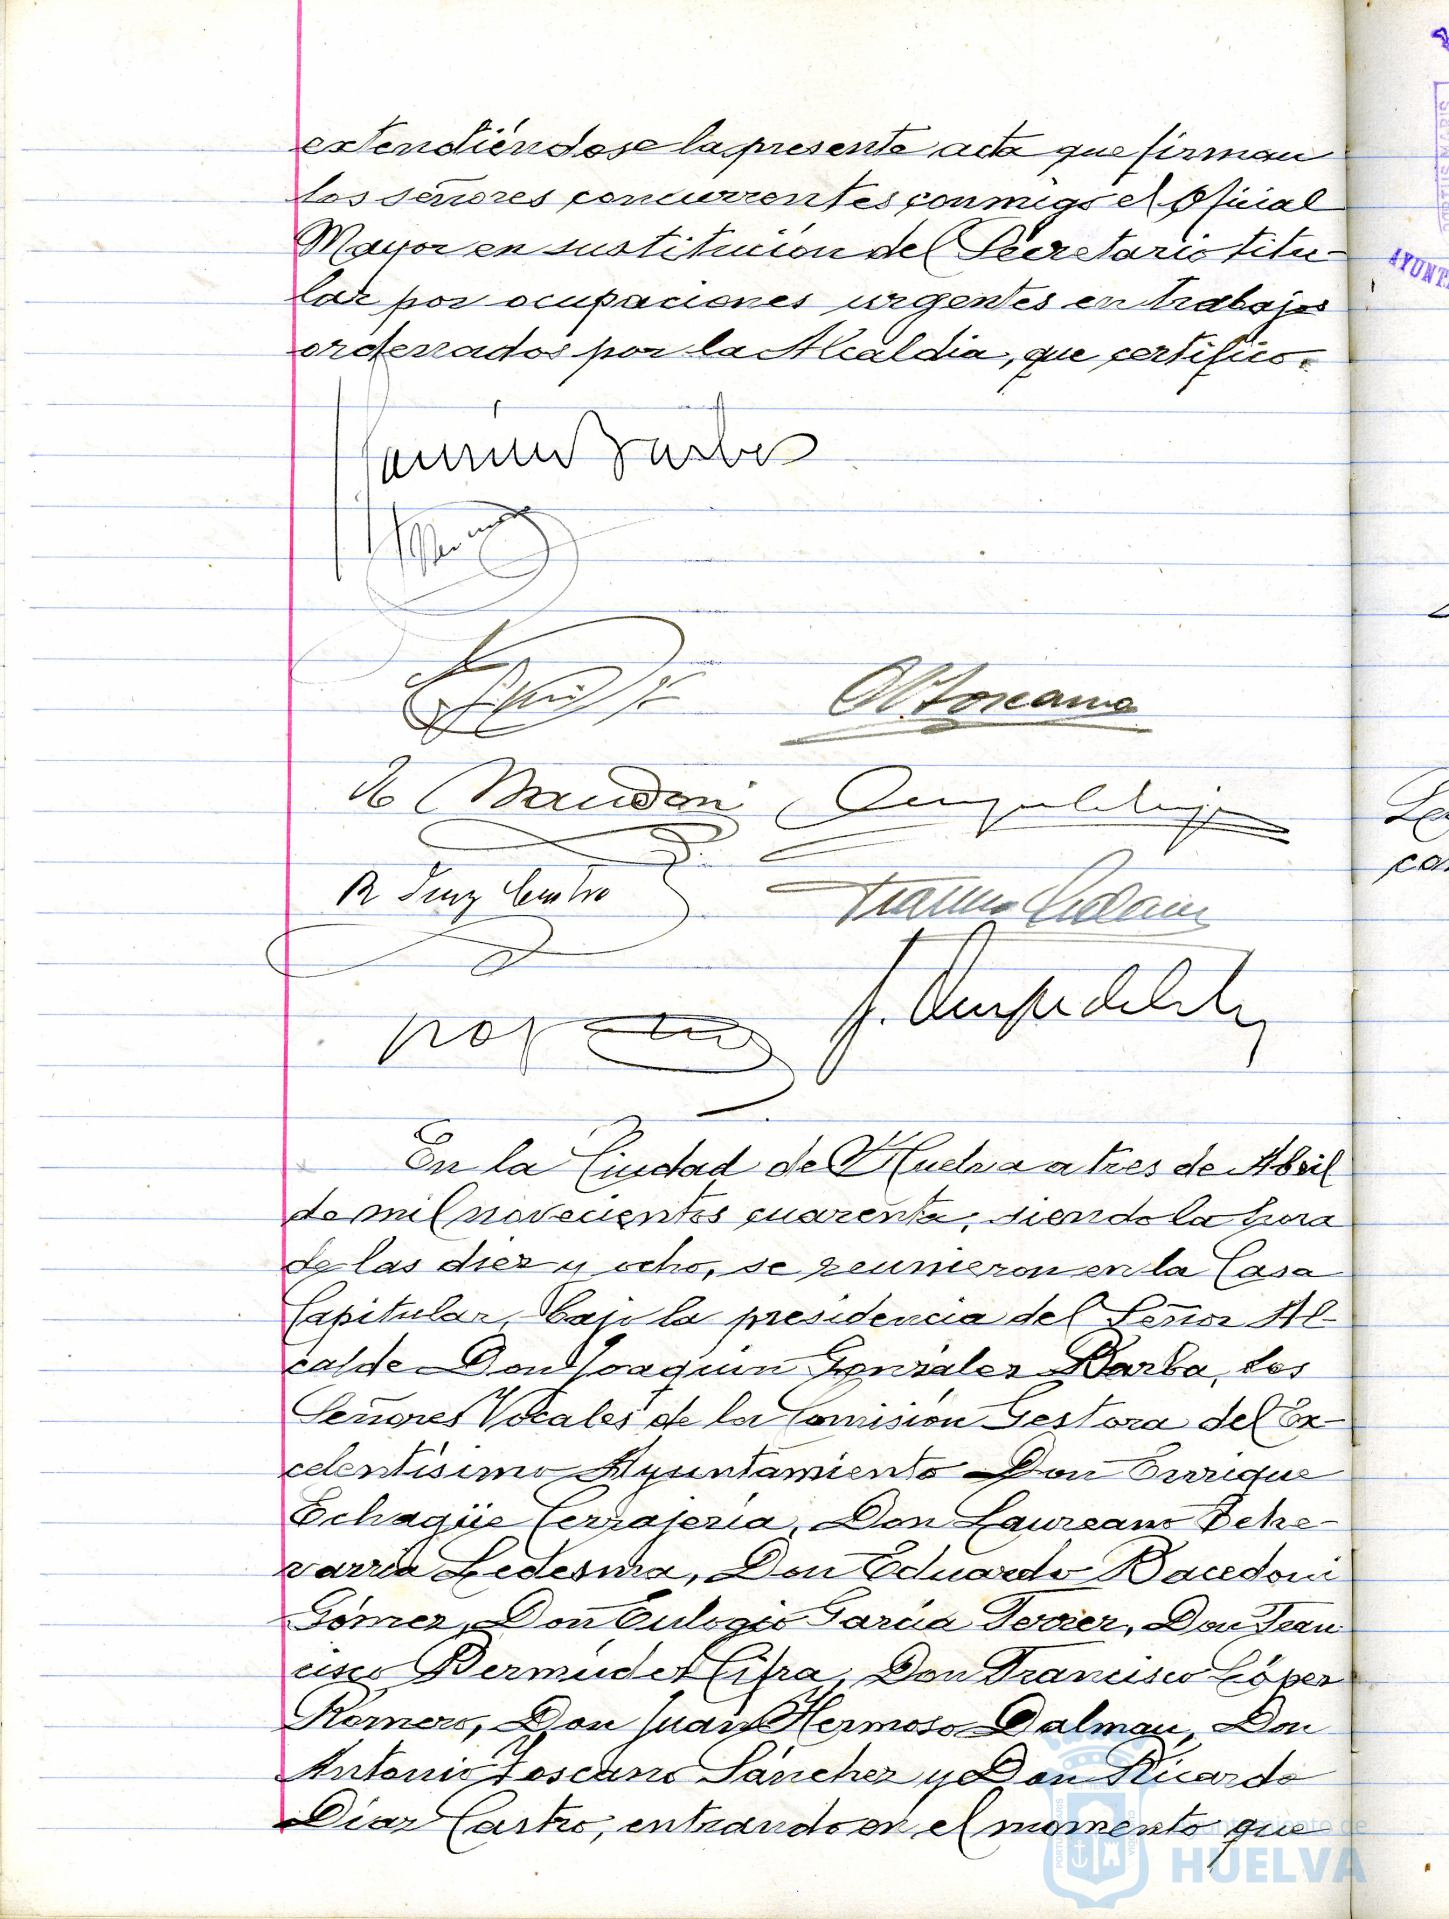 extendiéndose la presente acta que firman
los señores concurrentes conmigo el Oficial
Mayor en sustitución del Secretario titu-
lar por ocupaciones urgentes en trabajos
ordenados por la Alcaldia, que certifico.
R Diaz Castro
En la Ciudad de Huelva a tres de Abril
de mil novecientos cuarenta, siendo la hora
de las diez y ocho, se reunieron en la Casa
Capitular, bajo la presidencia del Señor Al-
calde Don Joaquin González Barba, los
Señores Vocales de la Comisión Gestora del Ex-
celentísimo Ayuntamiento Don Enrique
Echagüe Cerrajería, Don Laureano Eche-
varria Ledesma, Don Eduardo Bacedoni
Gómez, Don Eulogio García Terrer, Don Fran
cisco Bermúdez Cifra, Don Francisco López
Romero, Don Juan Hermoso Dalmau, Don
Antonio Toscano Sánchez y Don Ricardo
Díaz Castro, entrando en el momento que
Ayuntamiento de
HUELVA